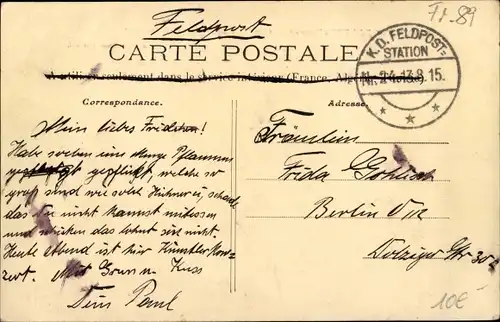 Feldpost
Ft. 89
CARTE POSTALE
K.D. FELDPOST=
STATION
Nr. 24 13.8.15.
A utiliser seulement dans le service intérieur (France, Algérie
Correspondance.
Adresse
Mein liebes Fridchen!
Habe soeben eine Menge Pflaumen
gepflückt, welche so
groß sind wie solch Hühnerei, schade
das Du nicht kannst mitessen
und schicken das lohnt sich nicht.
Heute Abend ist hier Künstler Kon-
zert. Mit Gruss u. Kuss
Dein Paul
Fräulein
Frida
Berlin
Dolziger Str 30
10€